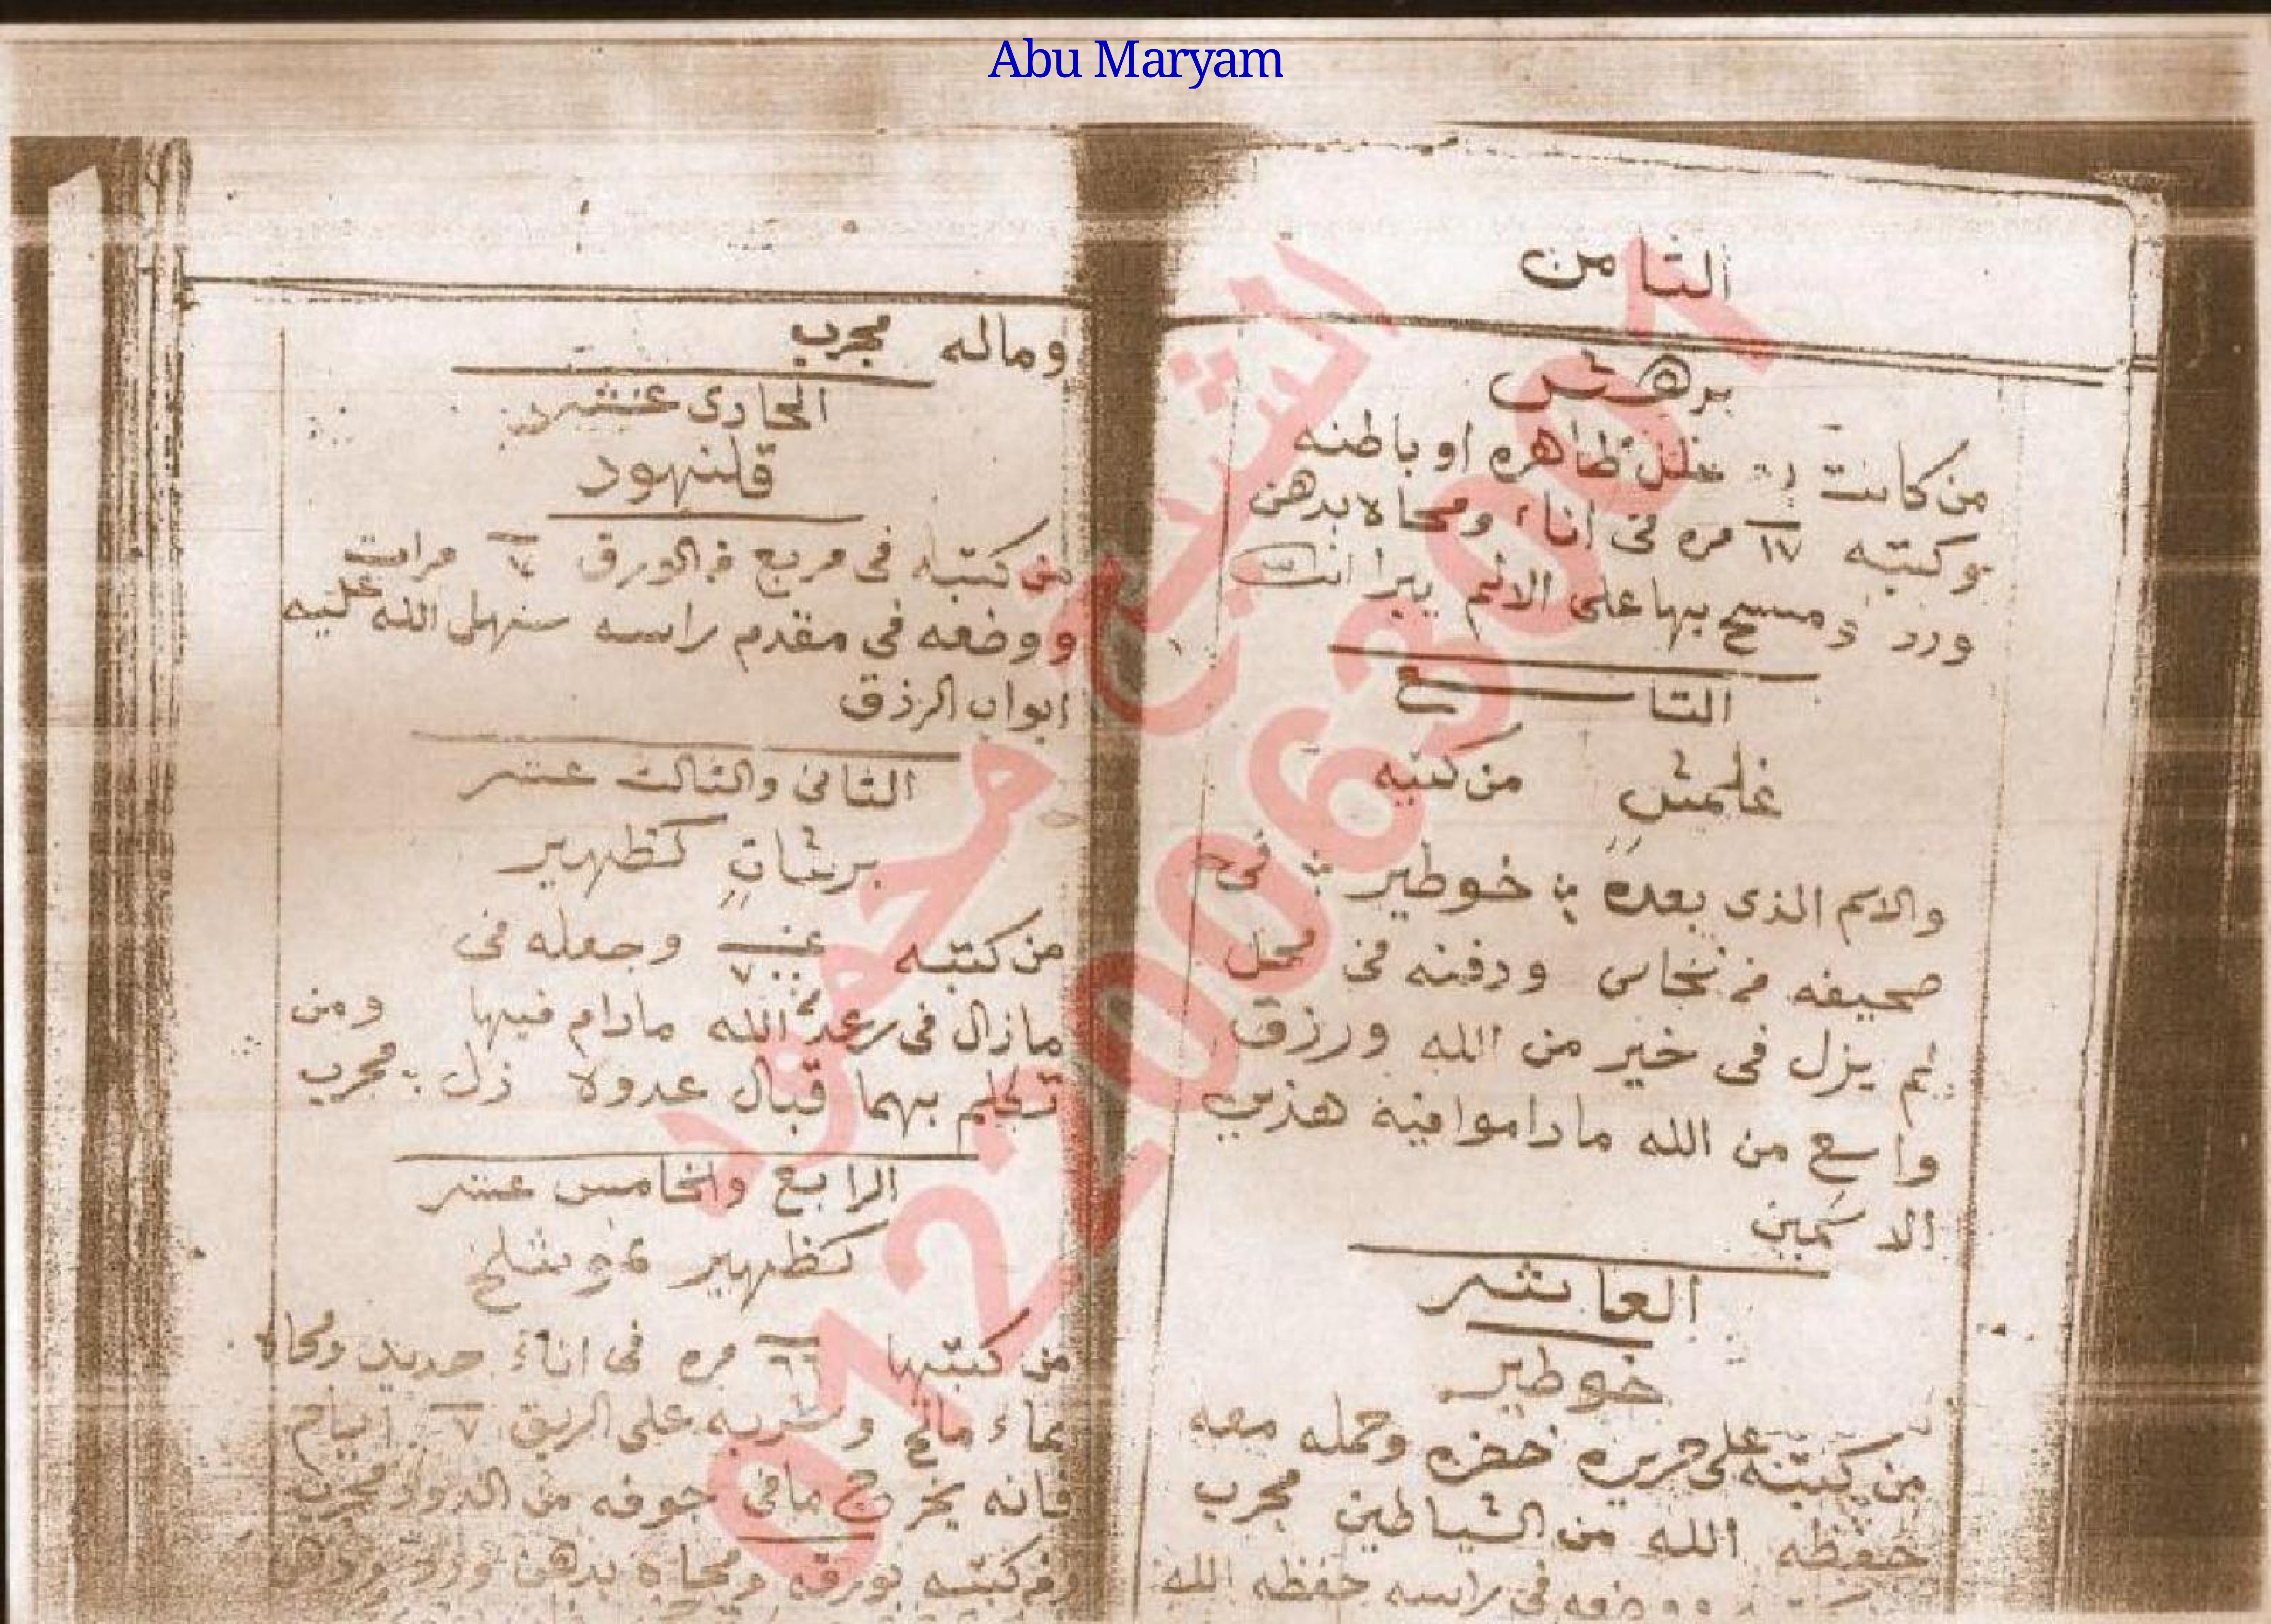 Abu Maryam
الثامن
برهش
من كانت علل ظاهره او باطنه
وكتبه ١٧ مره فى اناء ومحاه بدهن
ورد ومسح بها على الالم يبرا
التاسع
غلمش من كتبه
والاسم الذى بعده خوطير فى
صحيفه من نحاس ودفنه فى محل
لم يزل فى خير من الله ورزق
واسع من الله ماداموا فيه هذين
الاسمين
العاشر
خوطير
من كتبه على حريره خضره وحمله معه
حفظه الله من الشياطين مجرب
ووضعه فى راسه حفظه الله
وماله مجرب
الحادى عشر
قلنهود
من كتبه فى مربع من الورق مرات
ووضعه فى مقدم راسه سنهل الله عليه
ابواب الرزق
الثانى والثالث عشر
برشان كظهير
من كتبه وجعله فى
مازال فى رعد الله مادام فيها ومن
تكلم بهما قبال عدوه ذل مجرب
الرابع والخامس عشر
كظهير نموشلخ
من كتبها ٦٦ مره فى اناء حديد ومحاه
بماء مالح وشربه على الريق ٧ ايام
فانه يخرج مافى جوفه من الدود مجرب
ومن كتبه بورقه ومحاه بدهن ورد ودهن
الشيخ محمد
0722006301